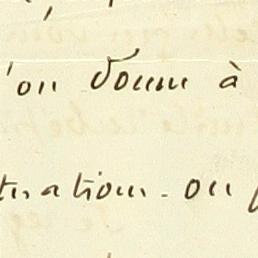 'on donne à
trations. on